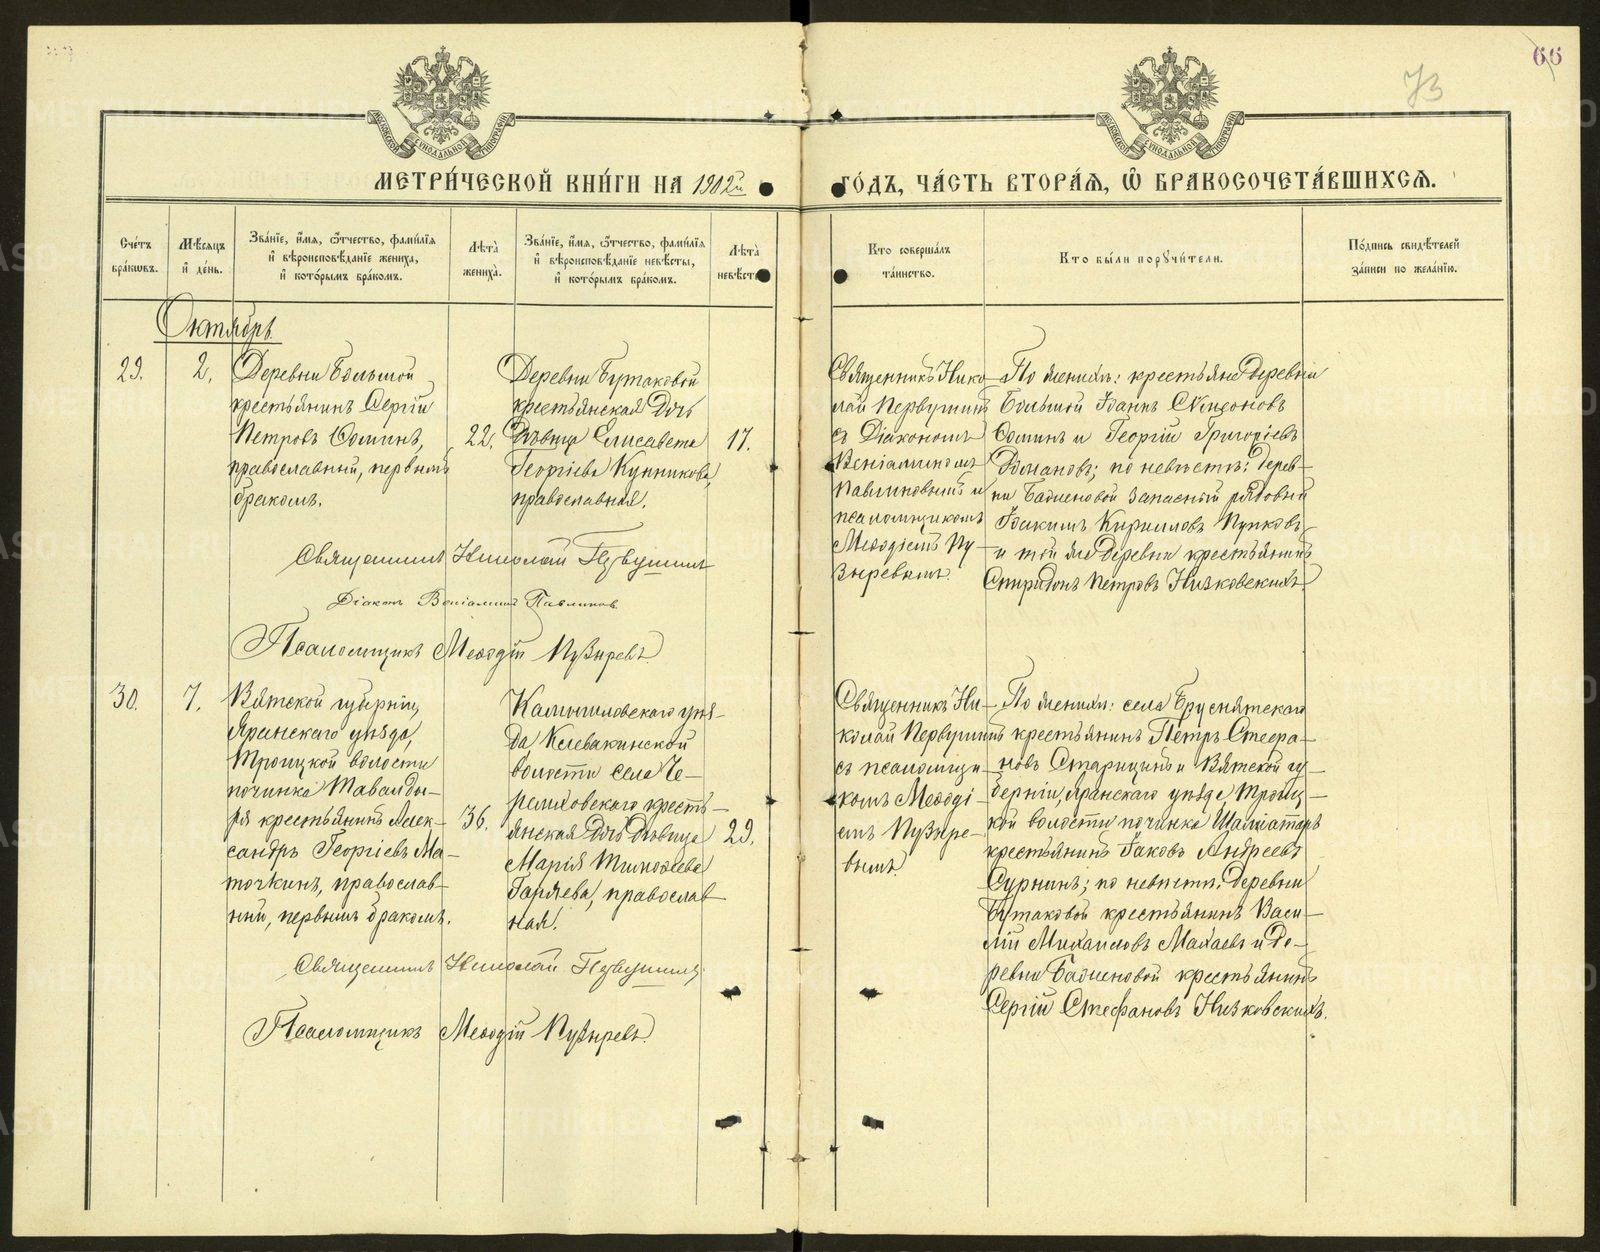 66
73
МЕТРИ́ЧЕСКОЙ КНИ́ГИ НА 1902й
ГО́ДЪ, ЧА́СТЬ ВТОРА́Я, Ѿ БРАКОСОЧЕТА́ВШИХСЯ.
Сче́тъ бра́ковъ.
Мѣ́сяцъ и҆ де́нь.
Зва́нїе, и҆́мя, ѻ҆́тчество, фами́лїя
и҆ вѣроисповѣ́данїе жениха̀,
и҆ кото́рымъ бра́комъ.
Лѣ́та жениха̀.
Зва́нїе, и҆́мя, ѻ҆́тчество, фами́лїя
и҆ вѣроисповѣ́данїе невѣ́сты,
и҆ кото́рымъ бра́комъ.
Лѣ́та невѣ́сты
Кто̀ соверша́лъ
та́инство.
Кто̀ бы́ли поручи́тели.
По́дпись свидѣ́телей
за́писи по жела́нїю.
Октябрь.
29.
2.
Деревни Большой
крестьянинъ Сергій
Петровъ Ѳоминъ,
православный, первымъ
бракомъ.
22.
Деревни Бутаковой
крестьянская дочь
дѣвица Елисавета
Георгіева Кунникова,
православная.
17.
Священникъ Нико-
лай Первушинъ
съ Діакономъ
Веніаминомъ
Павлиновымъ и
псаломщикомъ
Меѳодіемъ Пу-
зыревымъ.
По женихѣ: крестьяне деревни
Большой Іоаннъ Симеоновъ
Ѳоминъ и Георгій Григоріевъ
Домановъ; по невѣстѣ: дерев-
ни Баженовой запасный рядовый
Іоакимъ Кирилловъ Пупковъ
и той же деревни крестьянинъ
Спиридонъ Петровъ Низковскихъ.
Священникъ Николай Первушинъ
Діаконъ Веніаминъ Павлиновъ
Псаломщикъ Меѳодій Пузыревъ.
30.
7.
Вятской губерніи,
Яранскаго уѣзда,
Троицкой волости
починка Шавалды-
ря крестьянинъ Алек-
сандръ Георгіевъ Ма-
точкинъ, православ-
ный, первымъ бракомъ.
36.
Камышловскаго уѣз-
да Клевакинской
волости села Че-
ремховскаго кресть-
янская дочь дѣвица
Марія Тимоѳеева
Гаряева, православ-
ная.
29.
Священникъ Ни-
колай Первушинъ
съ псаломщи-
комъ Меѳоді-
емъ Пузыре-
вымъ.
По женихѣ: села Бруснятскаго
крестьянинъ Петръ Стефа-
новъ Старицинъ и Вятской гу-
берніи, Яранскаго уѣзда, Троиц-
кой волости починка
крестьянинъ Іаковъ Андреевъ
Сурнинъ; по невѣстѣ: деревни
Бутаковой крестьянинъ Васи-
лій Михаиловъ Махаевъ и де-
ревни Баженовой крестьянинъ
Сергій Стефановъ Низковскихъ.
Священникъ Николай Первушинъ
Псаломщикъ Меѳодій Пузыревъ.